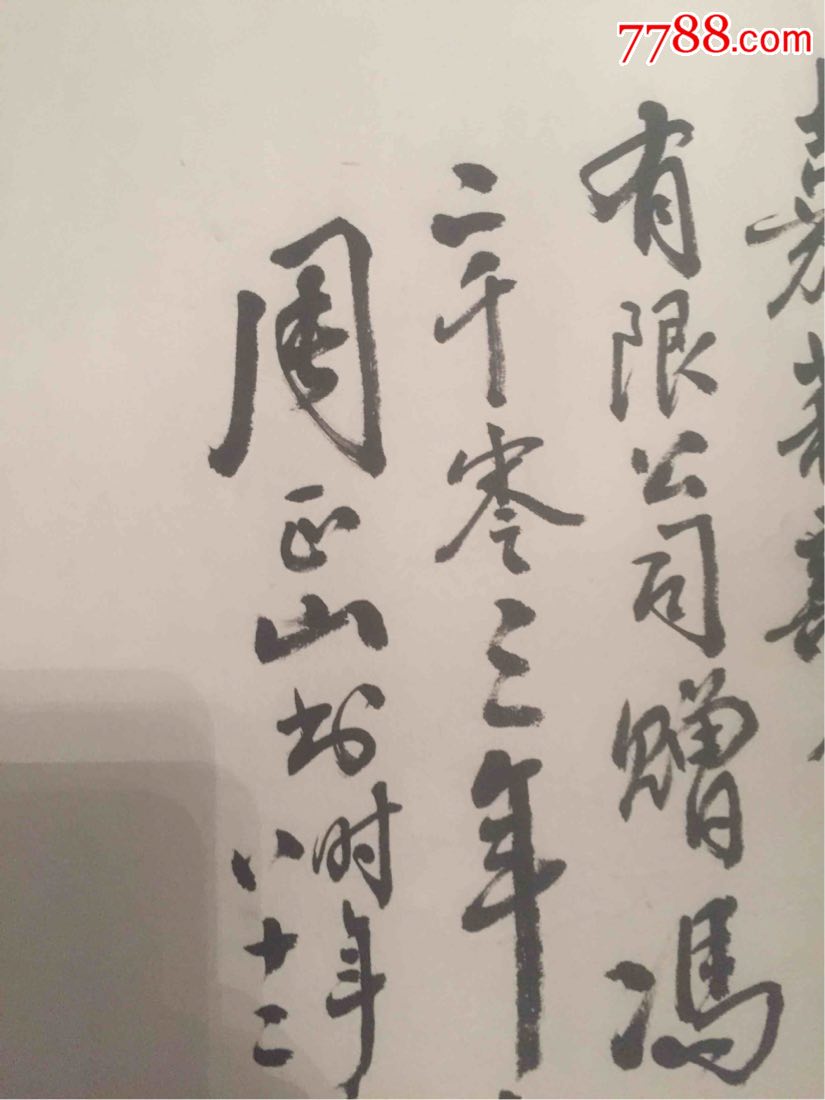 7788.com
嘉
有限公司赠冯
二千零三年
周正山书时年
八十二